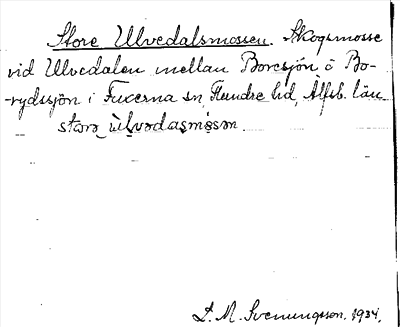 Store Ulvedalsmossen. Skogsmosse
vid Ulvedalen mellan Boresjön o Bo-
rydssjön i Fuxerna sn, Flundre hd, Älfsb. län
stora ùlvadasmósan.
S. M. Svenungsson. 1934.